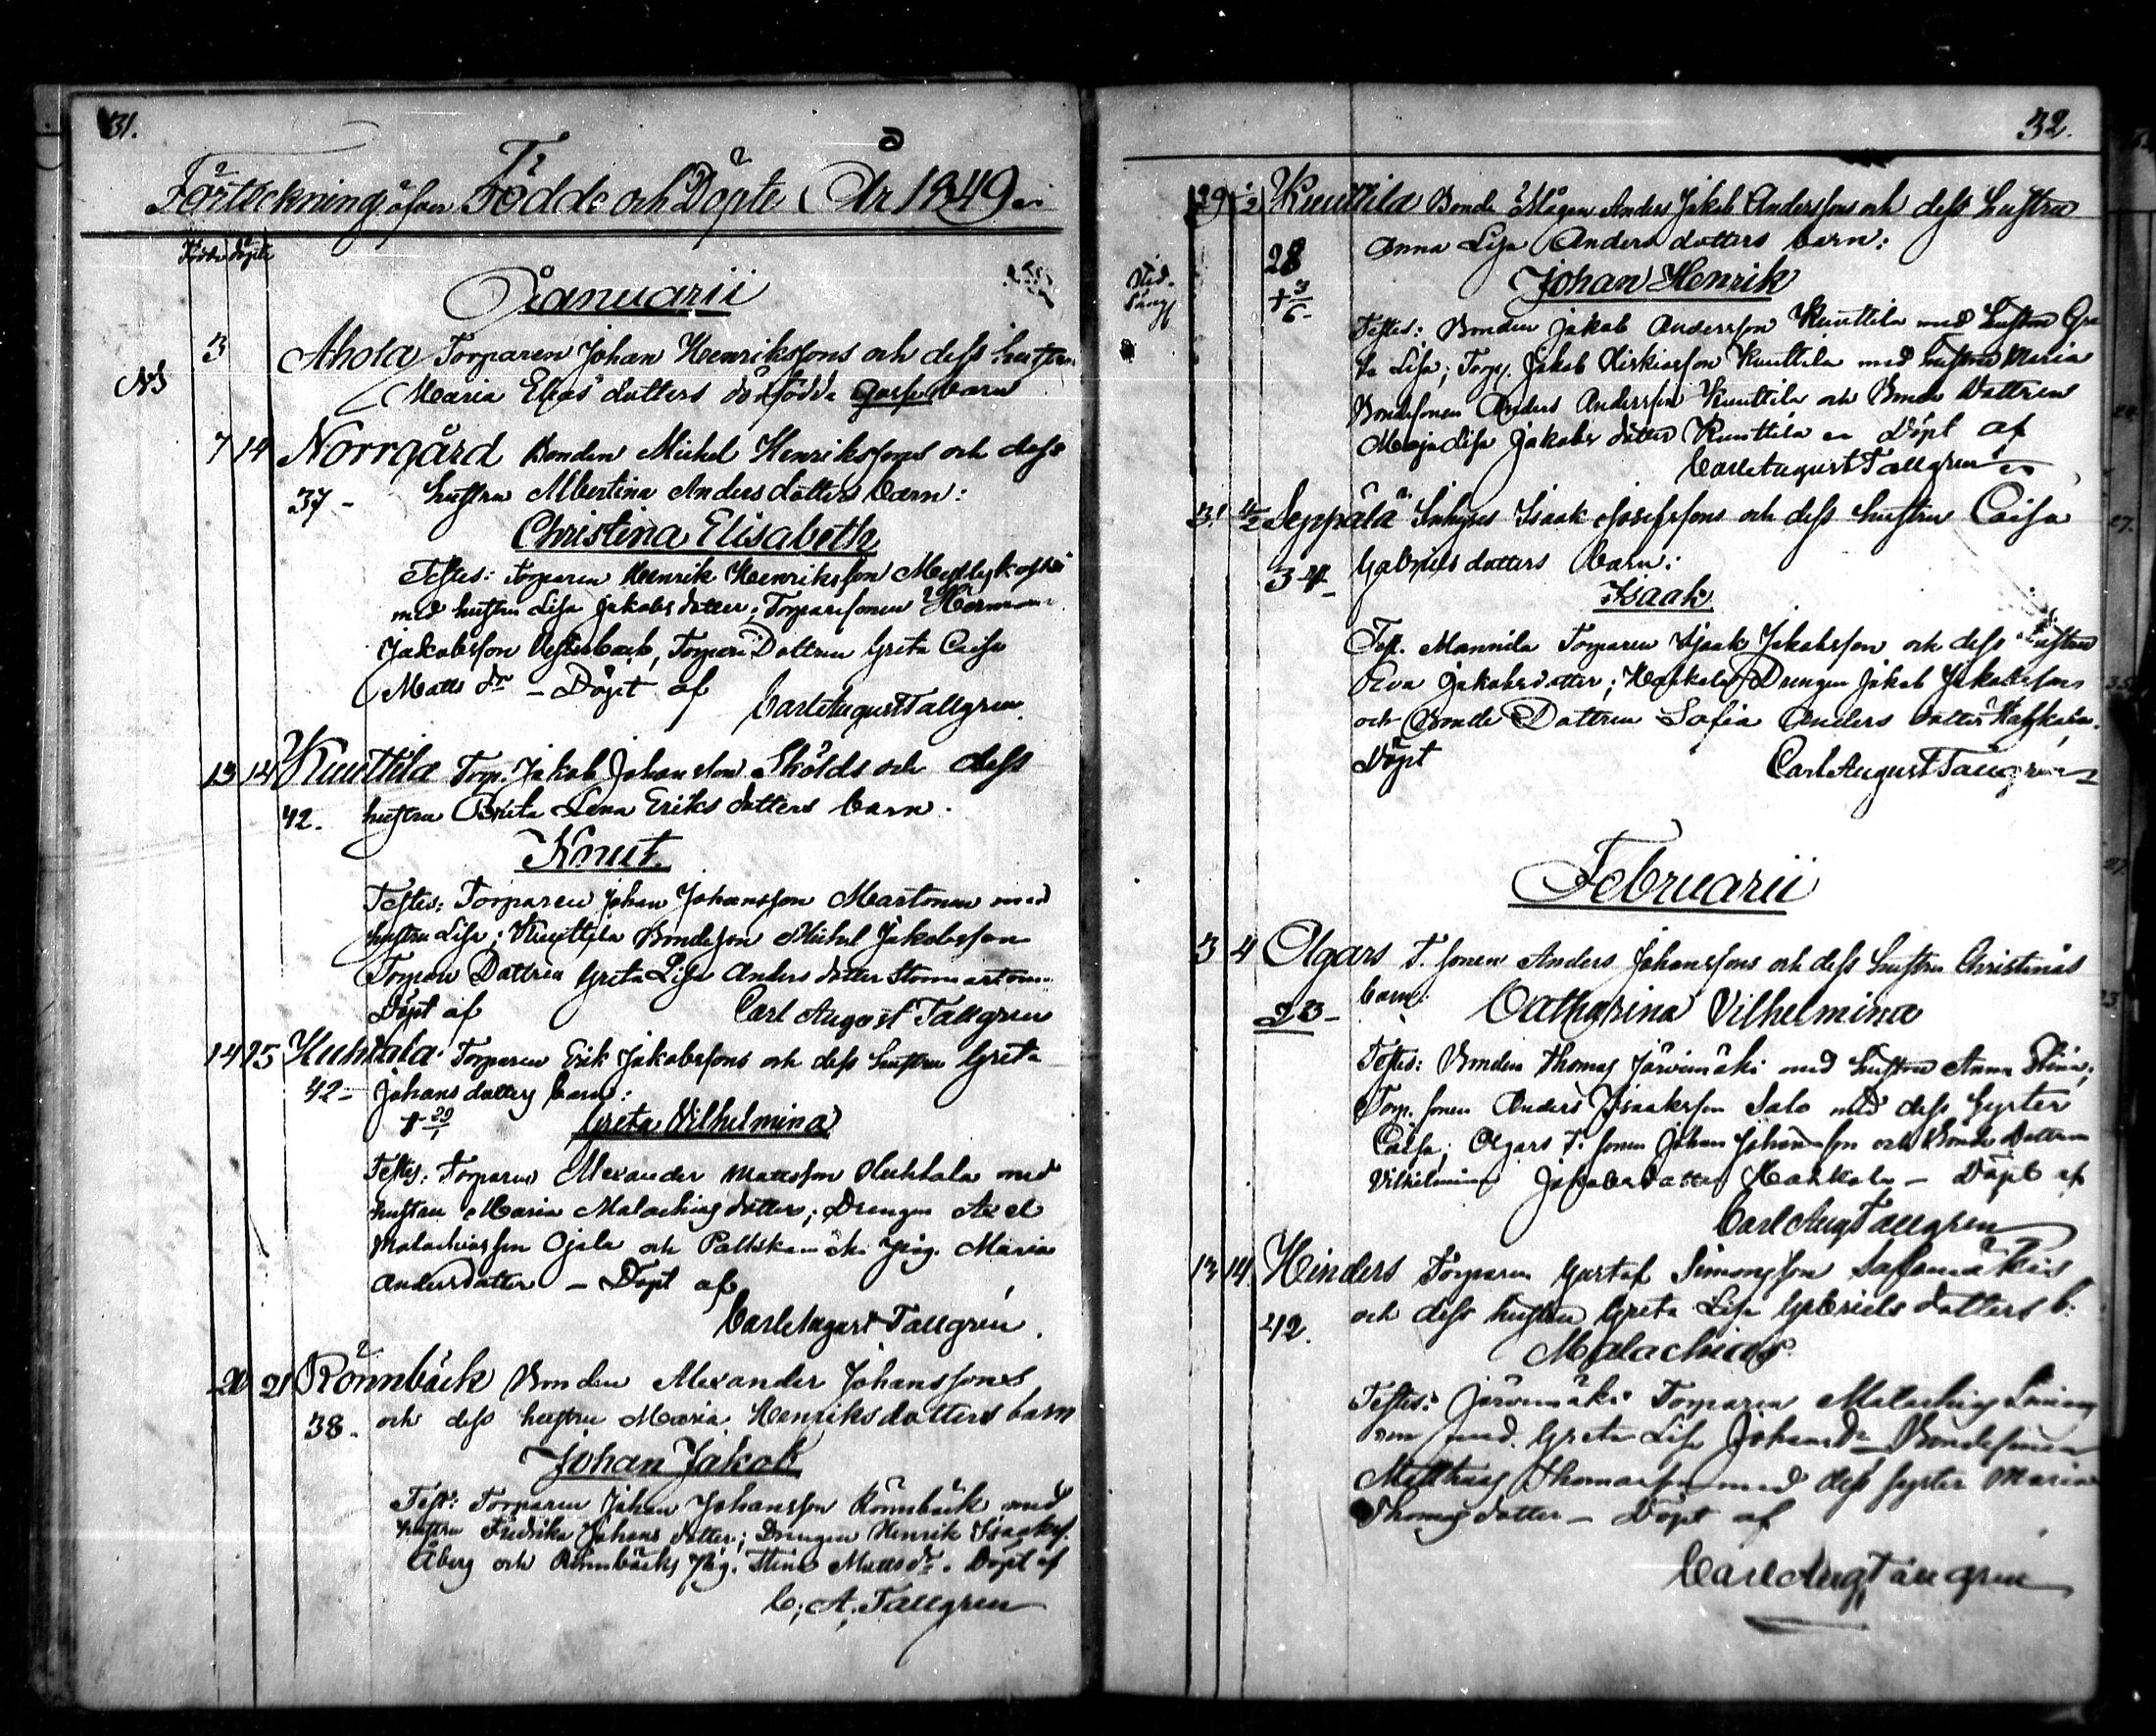 31.
Förteckning öfver Födde och Döpte År 1849
Födde Döpte
Januarii
3 Ahola Torparen Johan Henrikssons och dess hustru
Maria Elias dotters dödfödda gosse barn
7 14 Norrgård Bonden Michel Henrikssons och dess
37 - hustru Albertina Anders dotters barn:
Christina Elisabeth
Testes: Torparen Henrik Henriksson
med hustru Lisa Jakobs dotter; Torparesonen Herman
Jakobsson Westerback, Torpare Dottren Greta Caisa
Matts dr – Döpt af
Carl August Tallgren
13 14 Knuttila Torp. Jakob Johansson Skölds och dess
42. hustru Brita Lena Eriks dotters barn.
Knut.
Testes: Torparen Johan Johansson Martonen med
hustru Lisa; Knuttila Bondeson Michel Jakobsson
Torpare Dottren Greta Lisa Anders dotter
Döpt af Carl August Tallgren
14 15 Huhtala Torparen Erik Jakobssons och dess hustru Greta
42 - Johans dotters barn:
+ 29/1 Greta Vilhelmina
Testes: Torparen Alexander Mattsson Huhtala med
hustru Maria Malachias dotter; Drengen Axel
Malachiasson Ojala och pig. Maria
Andersdotter – Döpt af
Carl August Tallgren.
20 21 Rönnbäck Bonden Alexander Johanssons
38. och dess hustru Maria Henriksdotters barn
Johan Jakob
Test: Torparen Johan Johansson Rönnbäck med
hustru Fredrika Johans dotter; Drengen Henrik Isakss.
Åberg och Rönnbäcks pig. Stina Matts dr. Döpt af
C. A. Tallgren
32.
29 Knuttila Bonde Mågen Anders Jakob Anderssons och dess hustru
28 Anna Lisa Anders dotters barn:
+ 3/6 Johan Henrik
Testes: Bonden Jakob Andersson Knuttila med hustru Gre
ta Lisa; Torp. Jakob Kiskiasson Knuttila med hustru Maria
Bondesonen Anders Andersson Knuttila och Bonde Dottren
Maja Lisa Jakobs dotter Knuttila Döpt af
Carl August Tallgren
31 4/2 Seppälä Inhyses Isaak Josefssons och dess hustru Caisa
34 - Gabriels dotters barn:
Isaak
Test. Mannila Torparen Isaak Jakobsson och dess hustru
Eva Jakobsdotter; Drengen Jakob Jakobsson
och Bonde Dottren Sofia Anders dotter
Döpt Carl August Tallgren
Februarii
3 4 Olgars T. sonen Anders Johanssons och dess hustru Christinas
23 - barn: Catharina Vilhelmina
Testes: Bonden Thomas Järvimäki med hustru Anna Stina;
Torp. sonen Anders Isaaksson Salo med dess syster
Caisa; Olgars T. sonen Johan Johansson och Bonde Dottren
Vilhelmina Jakobsdotter – Döpt af
Carl Aug Tallgren
13 14 Hinders Torparen Gustaf Simonsson
42. och dess hustru Greta Lisa Gabriels dotters b:
Malachias
Testes: Järvimäki Torparen Malachias Simons
son med Greta Lisa Johansdr Bondesonen
Matthias Thomasson med dess syster Maria
Thomas dotter – Döpt af
Carl Aug Tallgren